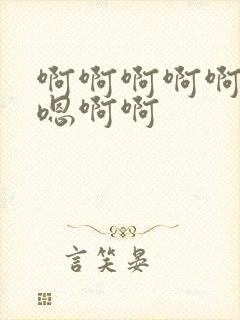 啊啊啊啊啊
嗯啊啊
言笑晏